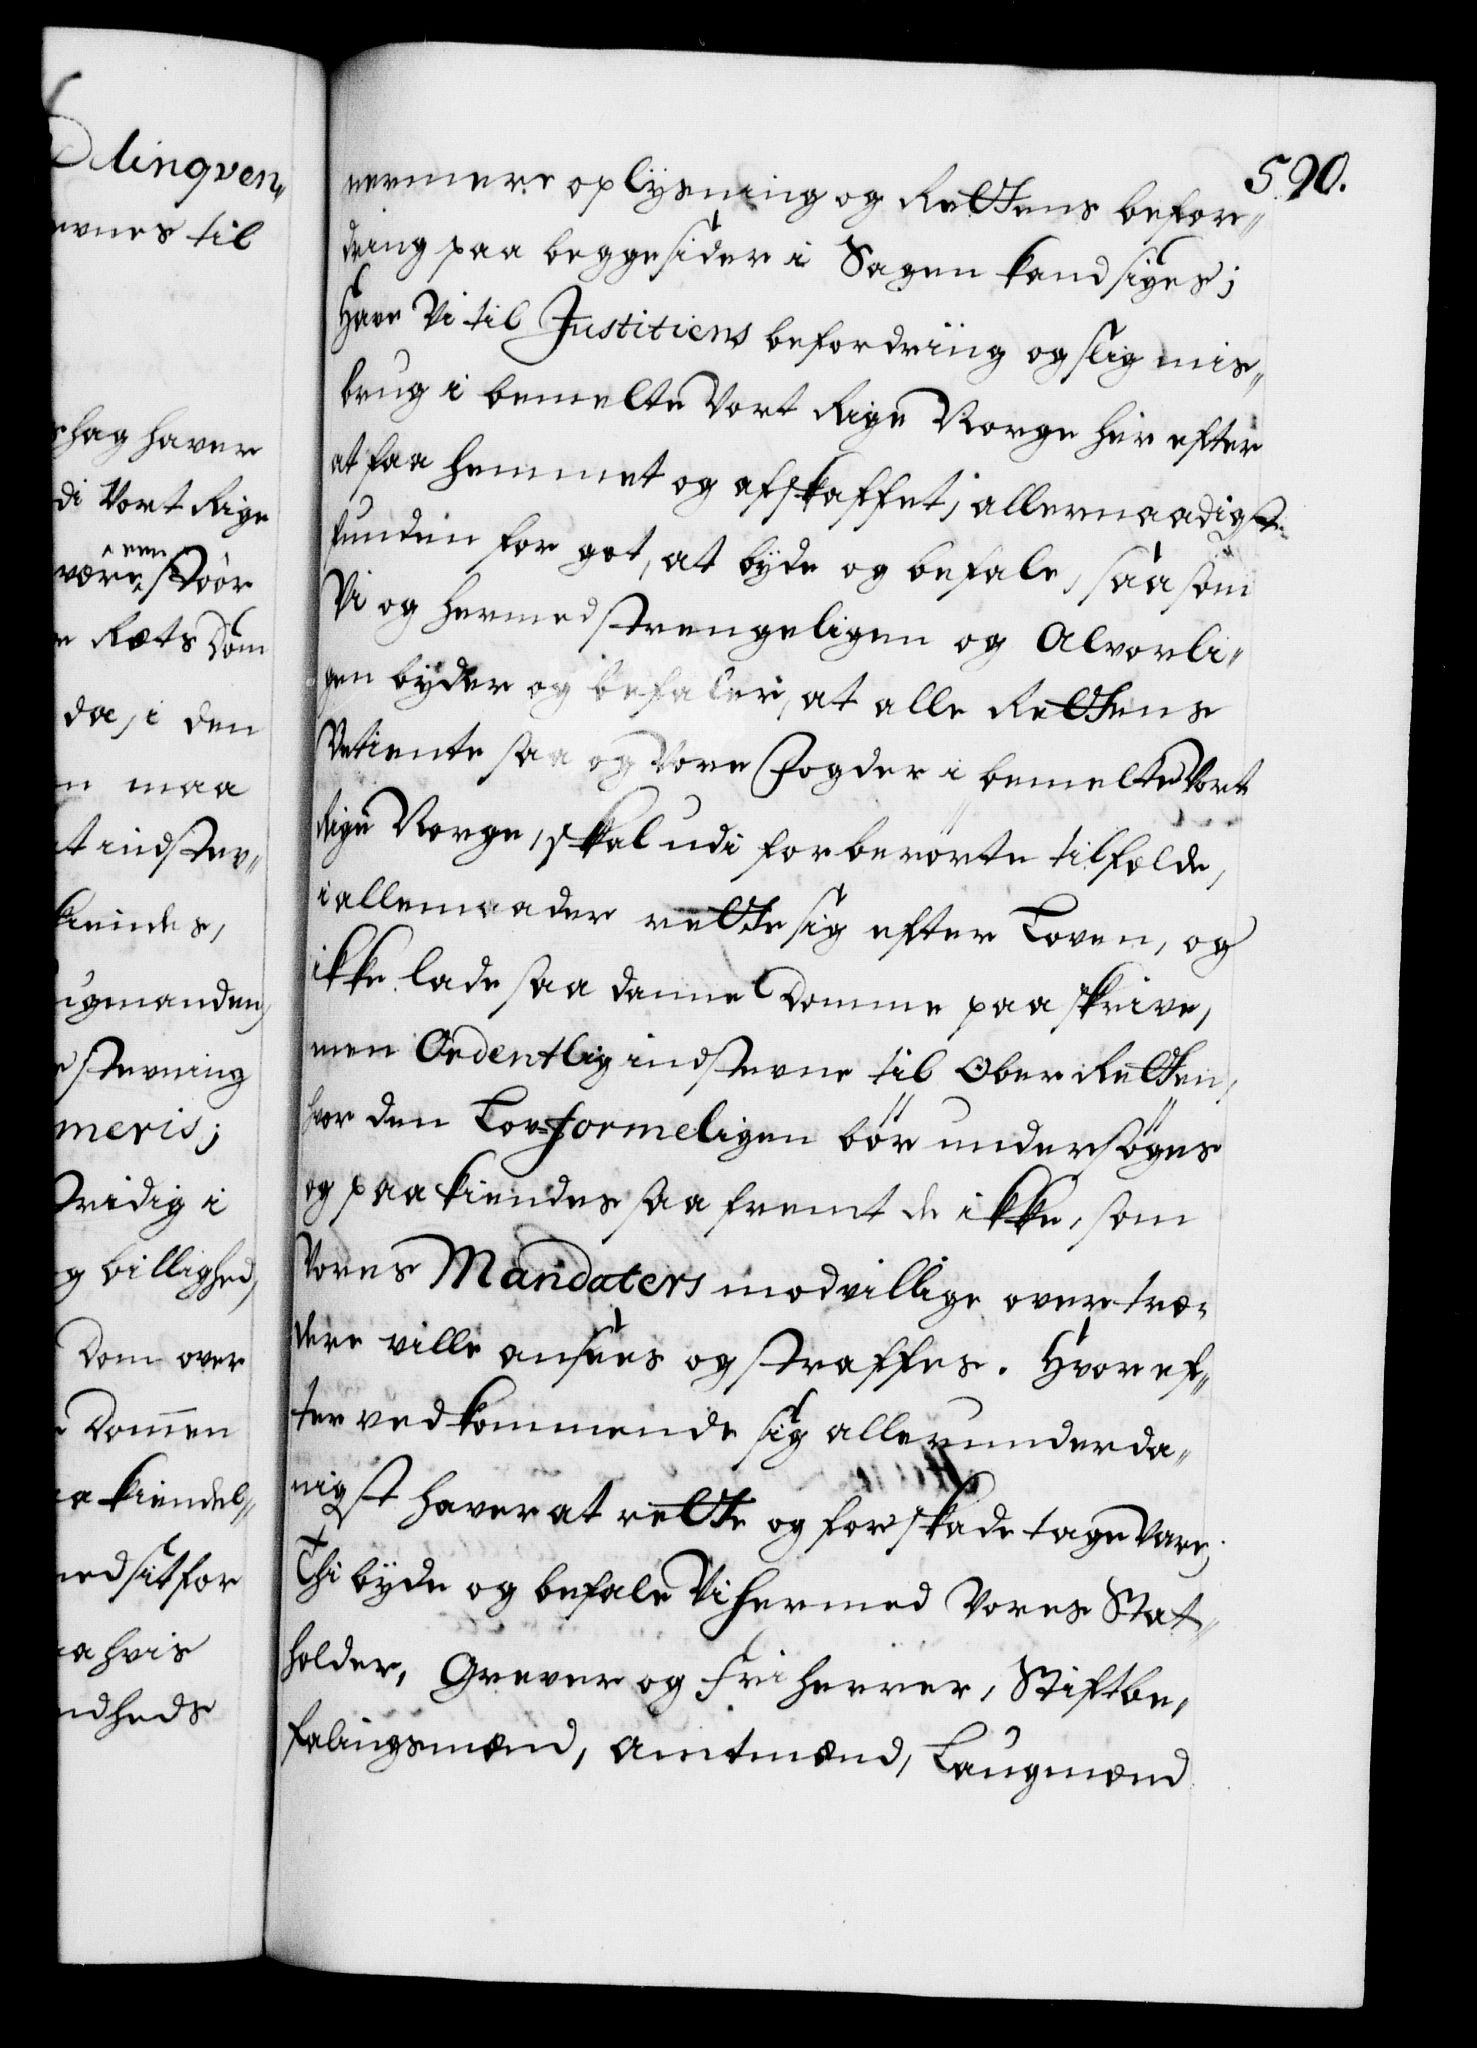 Dlinqven„
evnes til
shag haver
di Vort Rige
een
være stoör
e Rets Dom
da, i den
n maa
t indstev„
kiendes,
ugmanden,
e stevning
meris;
tridig i
g billighed,
Dom over
e Domen
a kiendel„
ned sit for
a hvis
ndheds
590.
nermere oplysning og Rettens befor„
dring paa beggesider i Sagen kand siges;
Have Vi til Justitiens befordriing og slig mis„
brug i bemelte Vort Rige Norge her efter
at faa hemmet og afskaffet, allernaadigst
funden for got, at byde og befale, saasom
Vi og hermed strengeligen og Alvorli„
gen byder og befaler, at alle Rettens
Betiente saa og Vore Fogder i bemelte Vort
Rige Norge, skal udi forberörte tilfelde,
i allemaader rette sig efter Loven, og
ikke lade saa danne Domme paa skrive,
men Ordentlig indstevne til Ober Retten,
hvor den Lov-formeligen bör undersöges
og paakiendes saa fremt de ikke, som
Vores Mandaters modvillige overtræ„
dere ville ansees og straffes. Hvoref„
ter vedkommende sig allerunderda„
nigst haver at rette og for skade tage Vare;
Thi byde og befale Vi hermed Vores Stat„
holder, Grever og Friherrer, Stiftbe„
falingsmænd, Amtmænd, Laugmænd